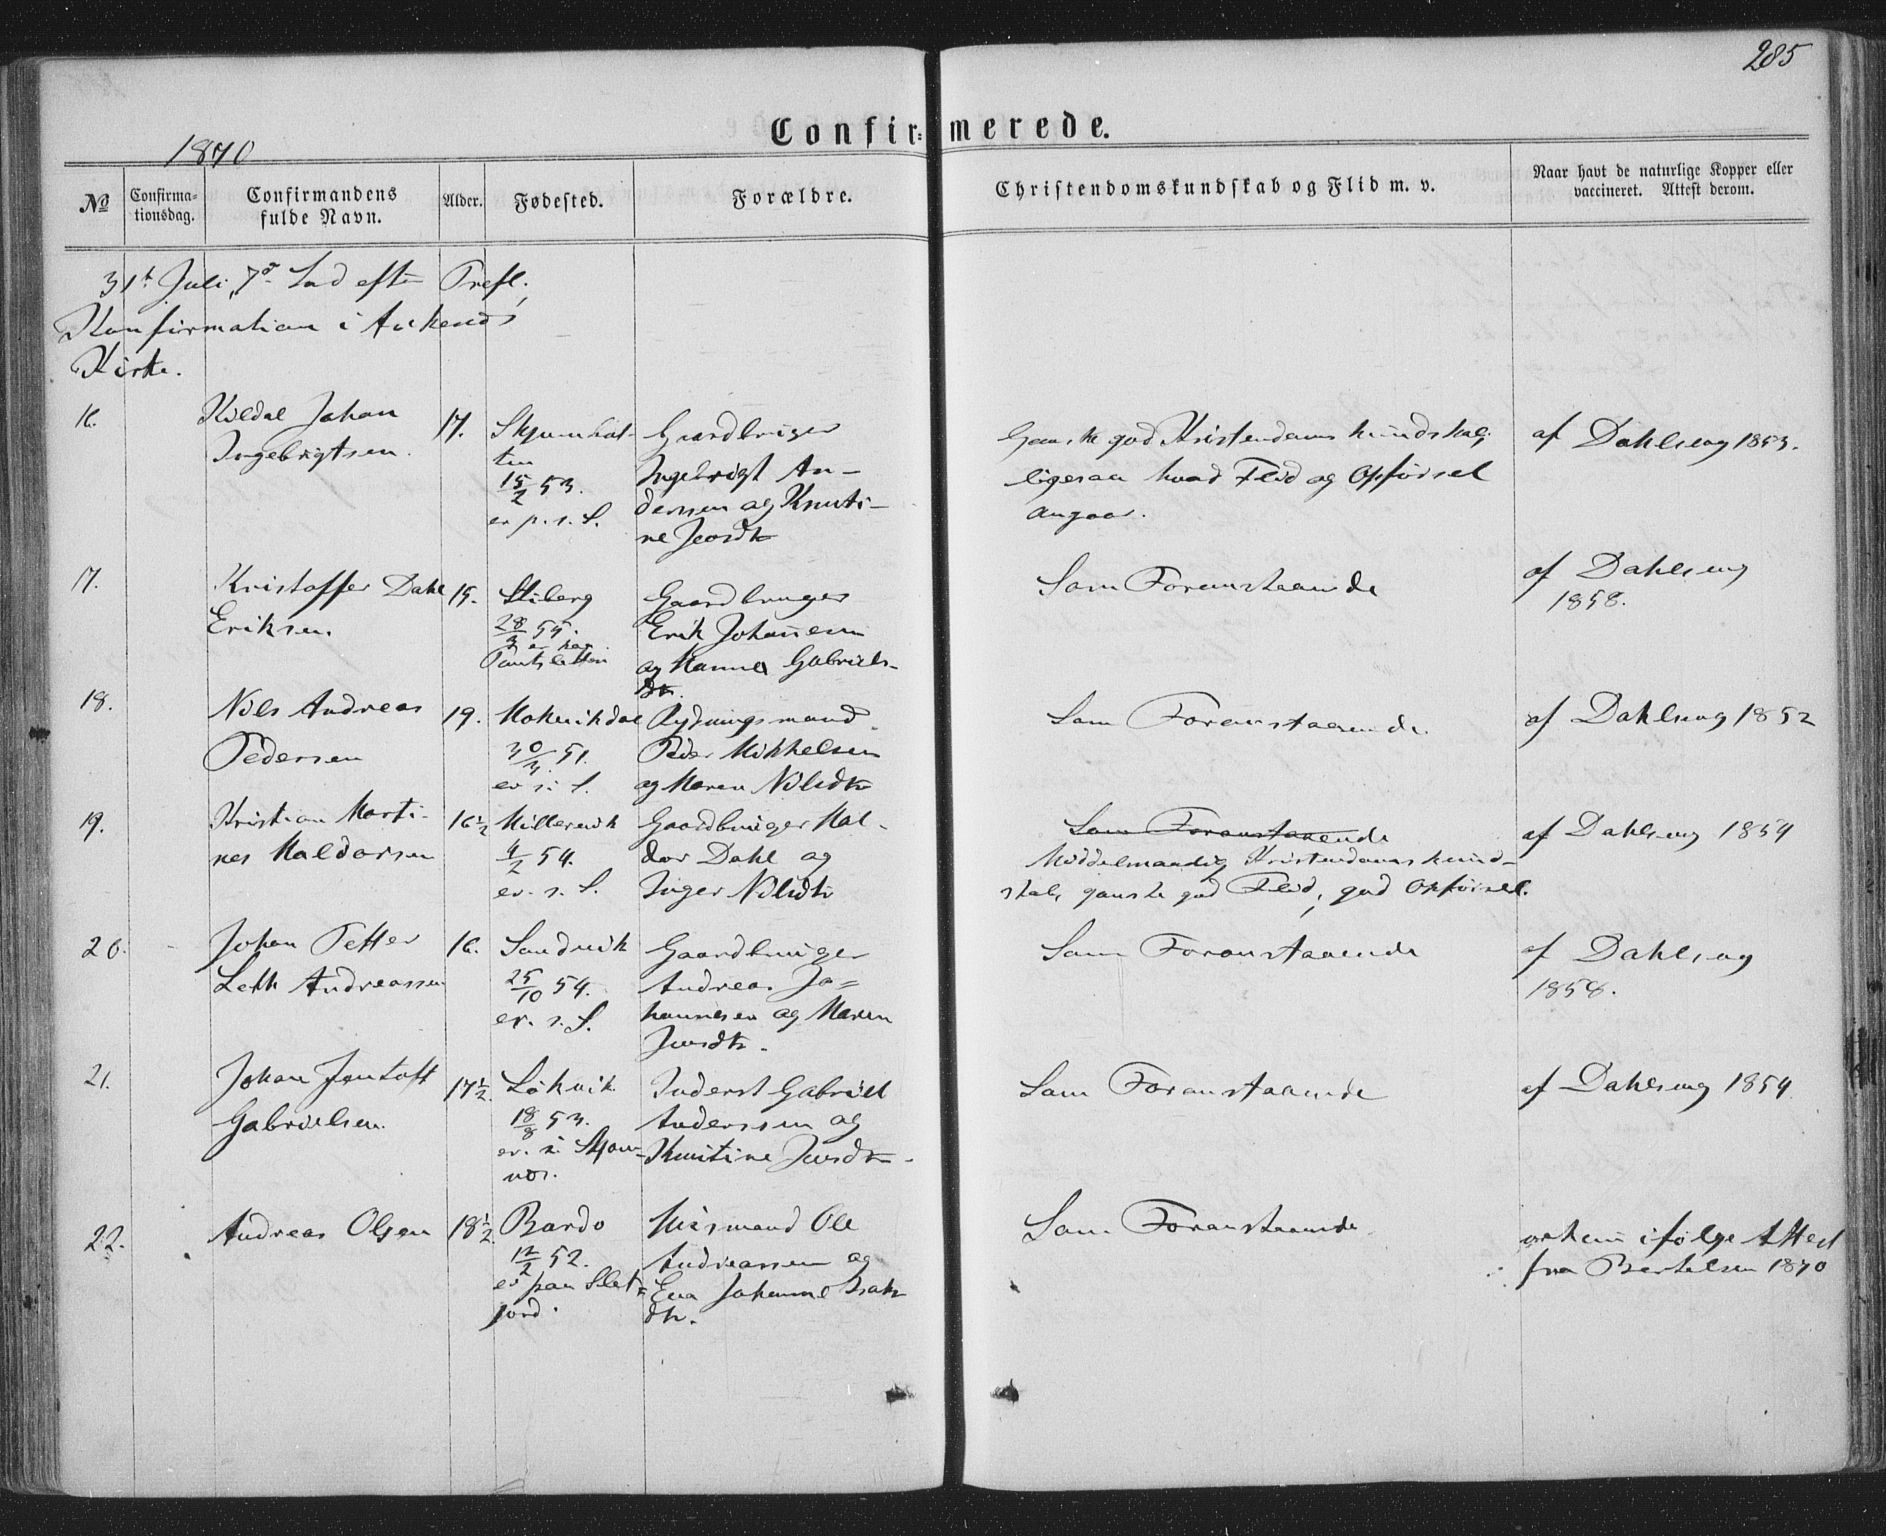 285
Confir=merede.
1870
No
Confirma-
tionsdag.
Confirmandens
fulde Navn.
Alder.
Fødested.
Forældre.
Christendomskundskab og Flid m. v.
Naar havt de naturlige Kopper eller
vaccineret. Attest derom.
31t Juli, 7de Sød efter Trefl.,
Konfirmation i Ankenes
Kirke.
16.
Kildal Johan
Ingebrigtsen.
17.
15/2 53.
er p. s. S.
Gaardbruger
Ingebrigt An-
dersen og Knuti-
ne Jensdtr
Ganske god Kristendomskundskab,
ligesaa hvad Flid og Opførsel
angaar.
af Dahlseng 1853.
17.
Kristoffer Dahl
Eriksen.
15.
Stiberg
28/3 55.
Gaardbruger
Erik Johannesen
og Hanna Gabriels-
dtr.
Som Foranstaaende
af Dahlseng
1858.
18.
Nils Andreas
Pedersen
19.
30/3 51.
er s. S.
Rydningsmand
Peder Mikkelsen
og Maren Nilsdtr
Som Foranstaaende
af Dahlseng 1852
19.
Kristian Marti-
nes Haldorsen
16 1/2
4/2 54.
er. s. S.
Gaardbruger Hal-
dor Dahl og
Inger Nilsdtr
Som Foranstaaende
Middelmaadig Kristendomskund-
skab, ganske god Flid, god Opførsel.
af Dahlseng 1854
20.
Johan Petter
Leth Andreassen
16.
Sandvik
25/10 54.
er. s. S.
Gaardbruger
Andreas Jo=
hannesen og Maren
Jensdtr.
Som Foranstaaende
af Dahlseng
1858.
21.
Johan Jentoft
Gabrielsen.
17 1/2.
Løkvik
18/8 53.
er. i Skjom-
nes.
Inderst Gabriel
Anderssen og
Knutine Jensdtr.
Som Foranstaaende
af Dahlseng 1854
22.
Andreas Olsen
18 1/2
Bardo
12/2 52.
er paa Slet=
jord.
Husmand Ole
Andreassen og
Ena Johanne Isaks
dtr.
Som Foranstaaende
ifølge Attest
fra Bertelsen 1870